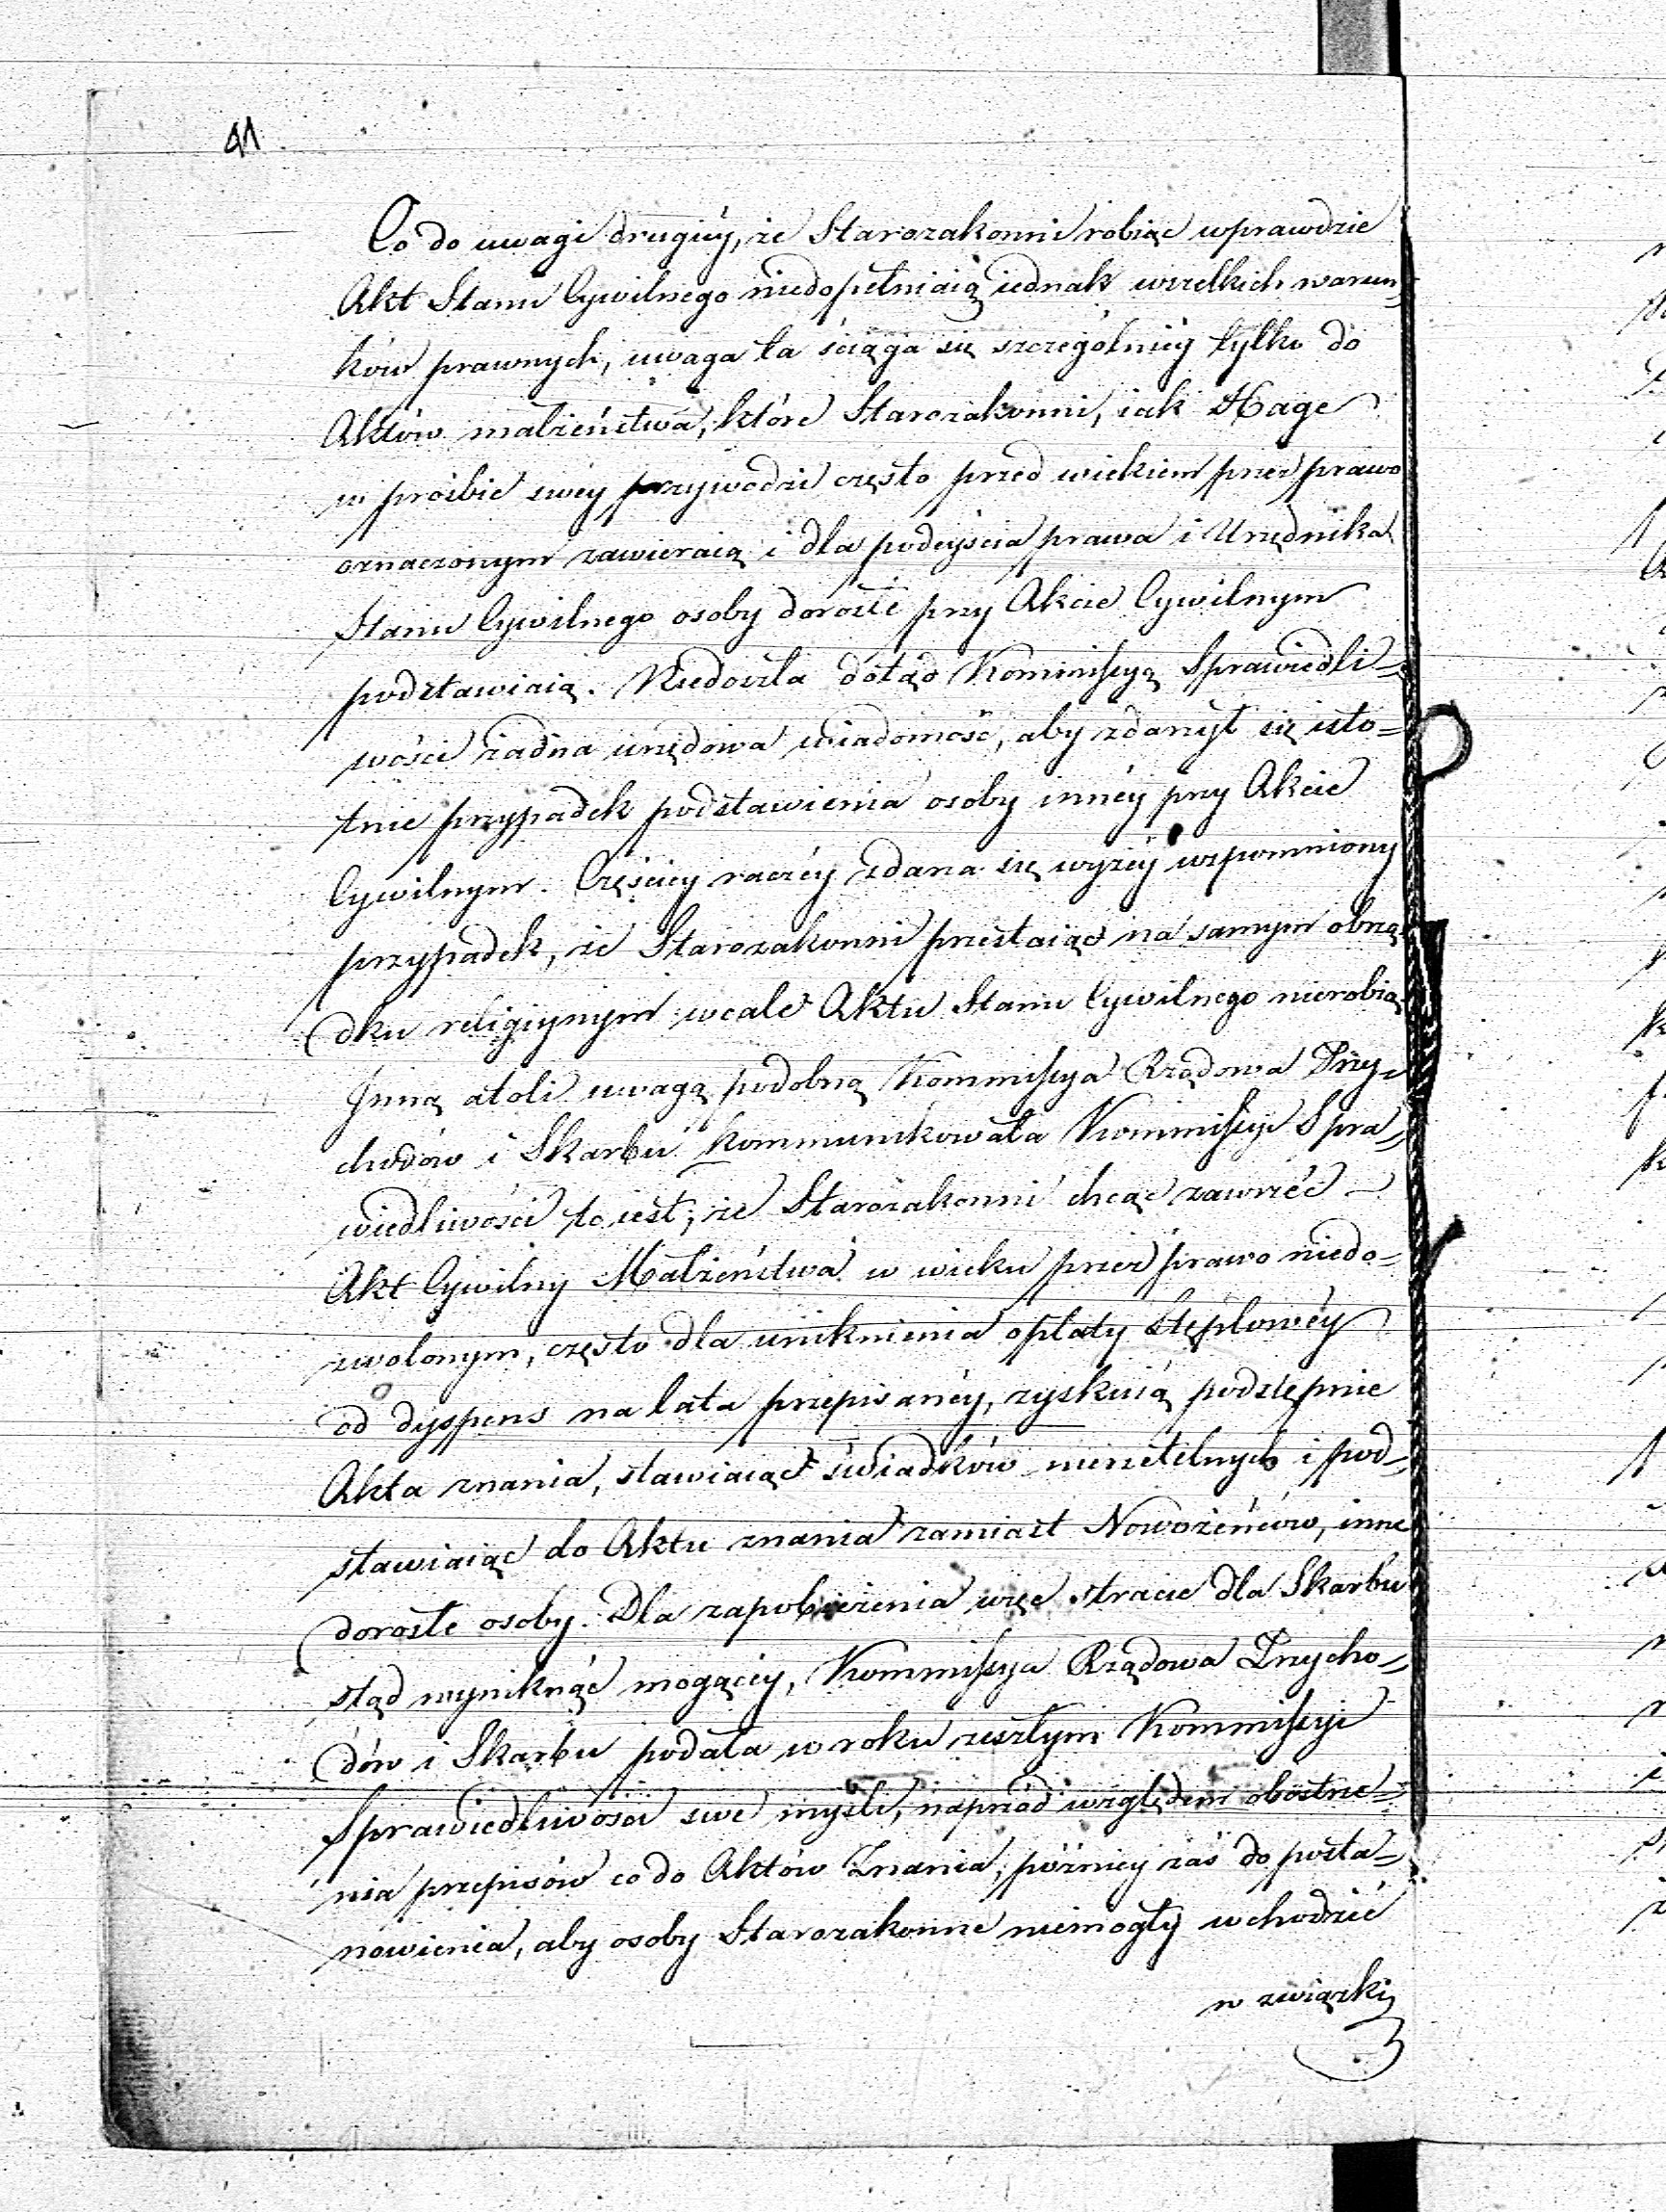 41
Co do uwagi drugiéy, że Starozakonni robiąc wprawdzie
Akt Stanu Cywilnego niedopełniaią iednak wszelkich warun-
ków prawnych, uwaga ta ściąga się szczególniéy tylko do
Aktów małżeństwa, które Starozakonni, iak Hage
w prośbie swéy przywodzi często przed wiekiem przez prawo
oznaczonym zawieraią i dla podeyścia prawa i Urzędnika
Stanu Cywilnego osoby dorosłe przy Akcie Cywilnym
podstawiaią. Niedoszła dotąd Kommissyą Sprawiedli=
wości żadna urzędowa wiadomość, aby zdarzył się isto=
tnie przypadek podstawienia osoby innéy przy Akcie
Cywilnym. Częściéy raczéy zdarza się wyżéy wspomniony
przypadek, że Starozakonni przestaiąc na samym obrzą
dku religiynym wcale Aktu Stanu Cywilnego nierobią
Inną atoli uwagą podobną Kommissya Rządowa Przy=
chodów i Skarbu kommunikowała Kommissyi Spra=
wiedliwości to iest; że Starozakonni chcąc zawrzéć
Akt Cywilny Małżeństwa w wieku przez prawo niedo=
zwolonym, często dla uniknienia opłaty stęplowéy
od dyspens na lata przepisanéy, zyskuią podstępnie
Akta znania, stawiaiąc świadków nierzetelnych i pod=
stawiaiąc do Aktu znania zamiast Nowożeńców, inne
dorosłe osoby. Dla zapobieżenia więc stracie dla Skarbu
stąd wyniknąć mogącéy, Kommissya Rządowa Przycho=
dów i Skarbu podała w roku zeszłym Kommissyi
Sprawiedliwości swe myśli, naprzód względem obostrze=
nia przepisów co do Aktów Znania, późniéy zaś do posta=
nowienia, aby osoby Starozakonne niemogły wchodzić
w związki